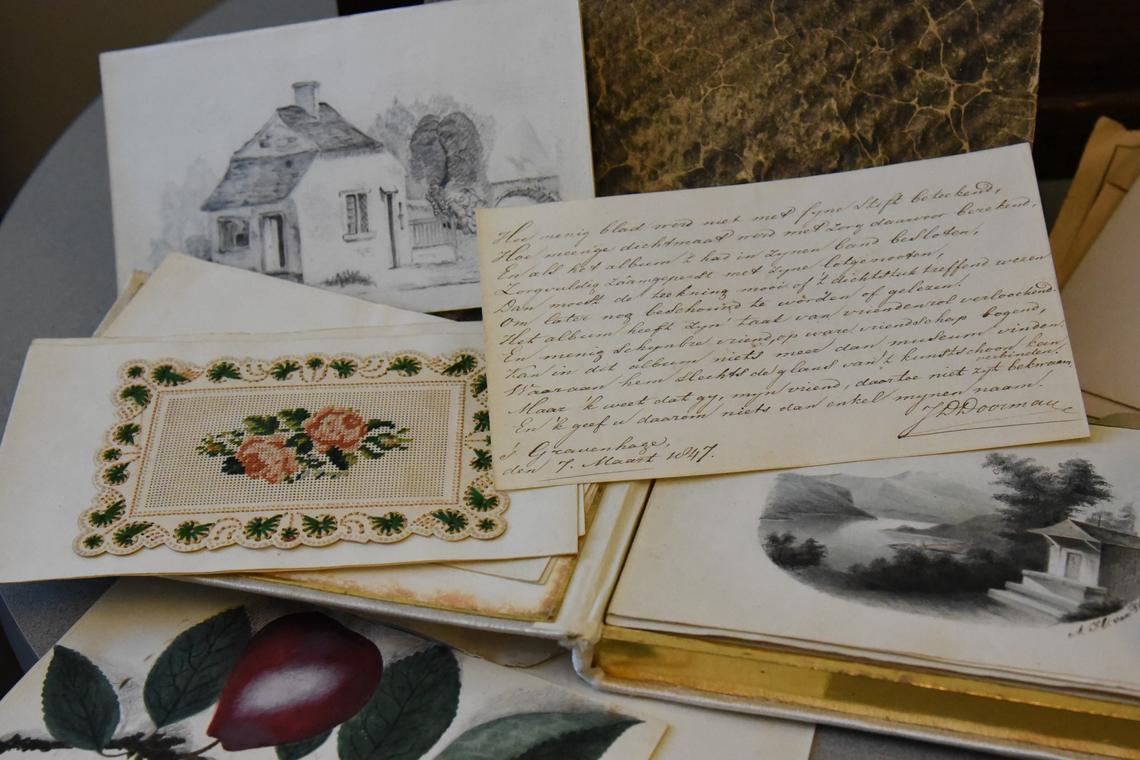 Hoe menig blad werd niet met fyne stift beteekend,
Hoe meenige dichtmaat werd met zorg daarvoor berekend,
En als het album 't had in zynen band besloten,
Zorgvuldig zaamgeperst met zyne lotgenooten,
Dan moest de teekning mooi of 't dichtstuk treffend wezen
Om later nog beschouwd te worden of gelezen.
Het album heeft zyn' taak van vriendenrol verloochend.
En menig schynbre vriend, op ware vriendschap bogend,
Zan in dit album niets meer dan museum vinden,
Waaraan hem slechts de glans van 't kunstschoon kan verbinden.
Maar 'k weet dat gy, myn vriend, daartoe niet zyt bekwaam,
En 'k geef u daarom niets dan enkel mynen naam.
Doorman
's Gravenhage,
den 7. Maart 1847.